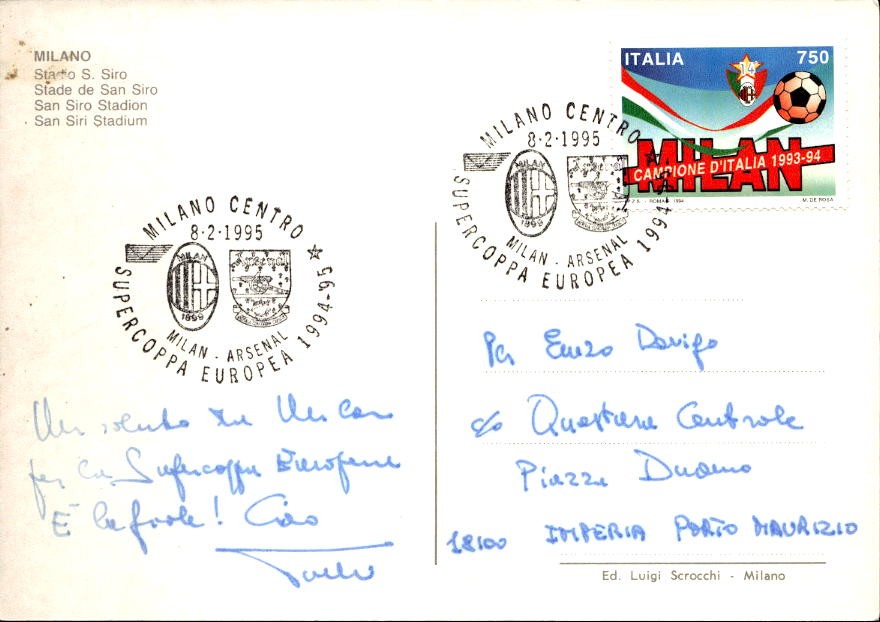 MILANO
Stadio S. Siro
Stade de San Siro
San Siro Stadion
San Siri Stadium
ITALIA 750
14
MILAN
CAMPIONE D'ITALIA 1993-94
I.P.Z.S. - ROMA - 1994 M. DE ROSA
MILANO CENTRO
8·2·1995
MILAN
1899
MILAN - ARSENAL
SUPERCOPPA EUROPEA 1994-95
MILANO CENTRO
8·2·1995
MILAN
1899
Arsenal
MILAN - ARSENAL
SUPERCOPPA EUROPEA 1994-95
Un saluto da Milan
per la Supercoppa Europea
È la finale! Ciao
Per Enzo Davigo
c/o Questura Centrale
Piazza Duomo
18100 IMPERIA PORTO MAURIZIO
Ed. Luigi Scrocchi - Milano